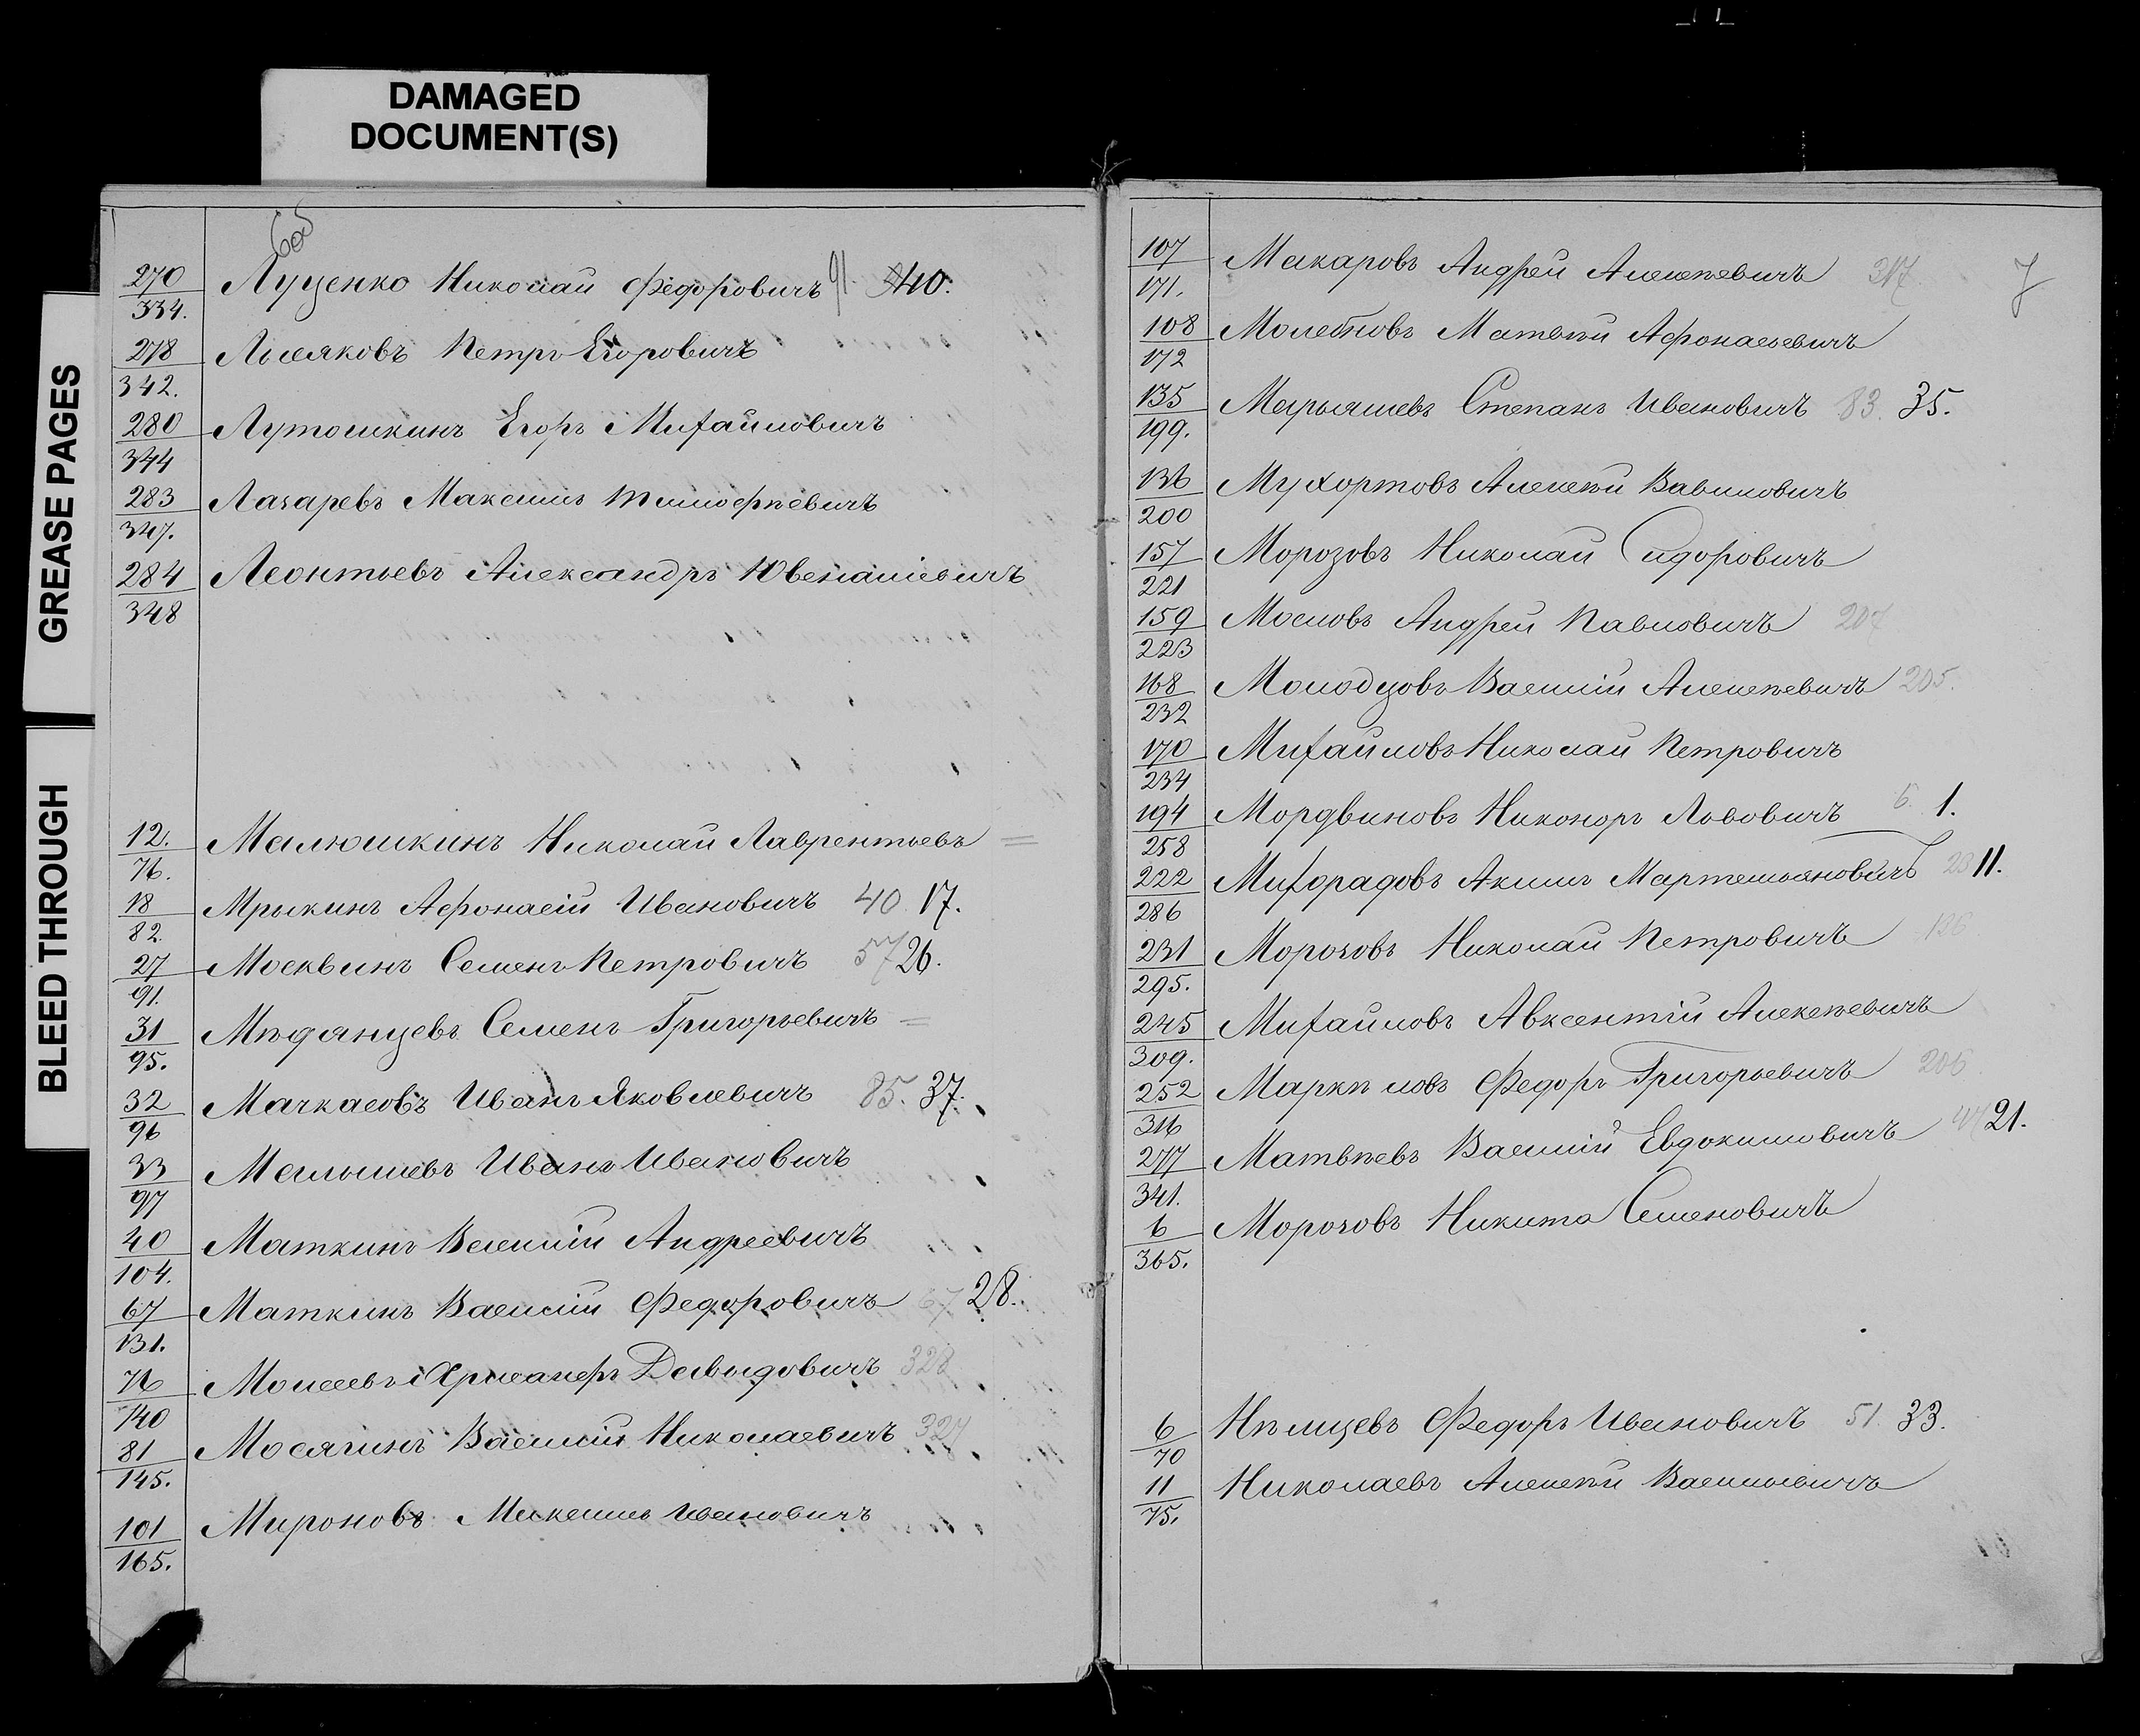 DAMAGED
DOCUMENT(S)
GREASE PAGES
BLEED THROUGH
6об
270 Луценко Николай Федоровичъ 91. 40.
334.
278 Лысяковъ Петръ Егоровичъ
342.
280 Лутошкинъ Егоръ Михайловичъ
344
283 Лазаревъ Максимъ Тимофѣевичъ
347.
284 Леонтьевъ Александръ Ювеналіевичъ
348
12. Малюшкинъ Николай Лаврентьевъ =
76.
18 Мрыкинъ Афонасій Ивановичъ 40 17.
82.
27 Москвинъ Семенъ Петровичъ 57 26.
91.
31 Мѣдянцевъ Семенъ Григорьевичъ =
95.
32 Мачкасовъ Иванъ Яковлевичъ 85. 37.
96
33 Малышевъ Иванъ Ивановичъ
97
40 Маткинъ Василій Андреевичъ
104.
67 Маткинъ Василій Федоровичъ 67 28.
131.
76 Моисеевъ Хрисанфъ Давыдовичъ 328
140
81 Мосягинъ Василій Николаевичъ 327
145.
101 Мироновъ Максимъ Ивановичъ
165.
7
107 Макаровъ Андрей Алексѣевичъ 317.
171.
108 Молебновъ Матвѣй Афонасьевичъ
172
135 Марьяшевъ Степанъ Ивановичъ 83. 35.
199.
136 Мухортовъ Алексѣй Вавиловичъ
200
157 Морозовъ Николай Сидоровичъ
221
159 Масловъ Андрей Павловичъ 207
223
168 Молодцовъ Василій Алексѣевичъ 205.
232
170 Михайловъ Николай Петровичъ
234
194 Мордвиновъ Никоноръ Львовичъ 5. 1.
258
222 Михорадовъ Акимъ Мартемьяновичъ 23 11.
286
231 Морозовъ Николай Петровичъ
295.
245 Михайловъ Авксентій Алексѣевичъ
309.
252 Маркѣловъ Федоръ Григорьевичъ 206.
316
277 Матвѣевъ Василій Евдокимовичъ 47 21.
341.
6 Морозовъ Никита Семеновичъ
365.
6 Нѣмцевъ Федоръ Ивановичъ 51. 33.
70
11 Николаевъ Алексѣй Васильевичъ
75.